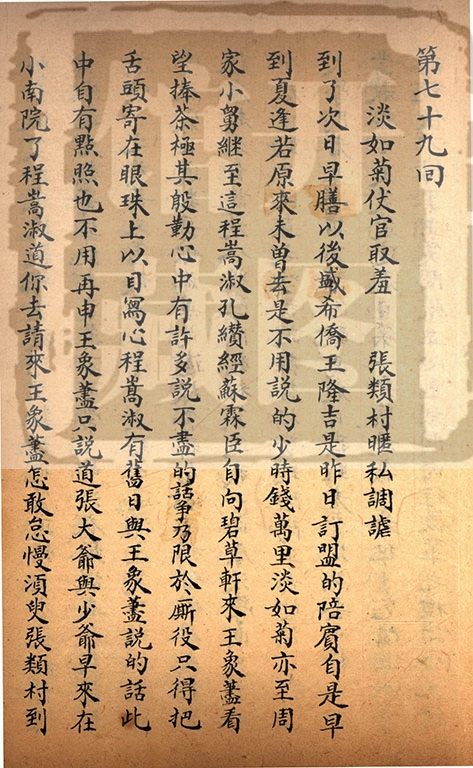 第七十九回
淡如菊仗官取羞　張類村暱私調謔
到了次日早膳以後盛希僑王隆吉是昨日訂盟的陪賓自是早
到夏逢若原來未曾去是不用說的少時錢萬里淡如菊亦至周
家小舅繼至這程嵩淑孔纘經蘇霖臣自向碧草軒來王象藎看
望捧茶極其殷勤心中有許多說不盡的話爭乃限於廝役只得把
舌頭寄在眼珠上以目寫心程嵩淑有舊日與王象藎說的話此
中自有點照也不用再申王象藎只說道張大爺與少爺早來在
小南院了程嵩淑道你去請來王象藎怎敢怠慢須臾張類村到